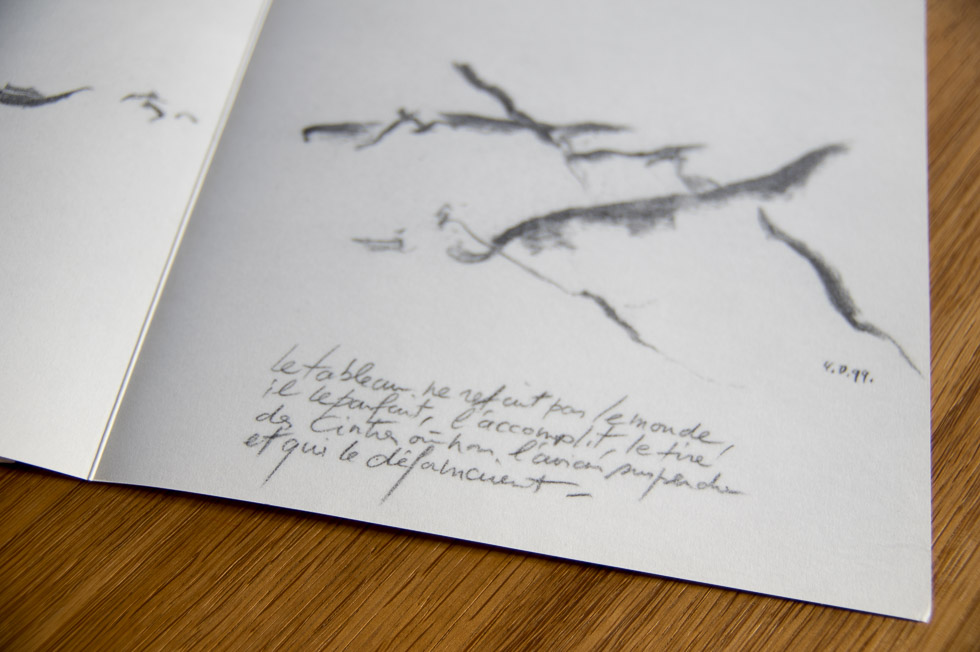 V.D.99.
le tableau ne refait pas le monde,
il le parfait, l'accomplit, le tire
des cintres où nous l'avions suspendu
et qui le déformaient –